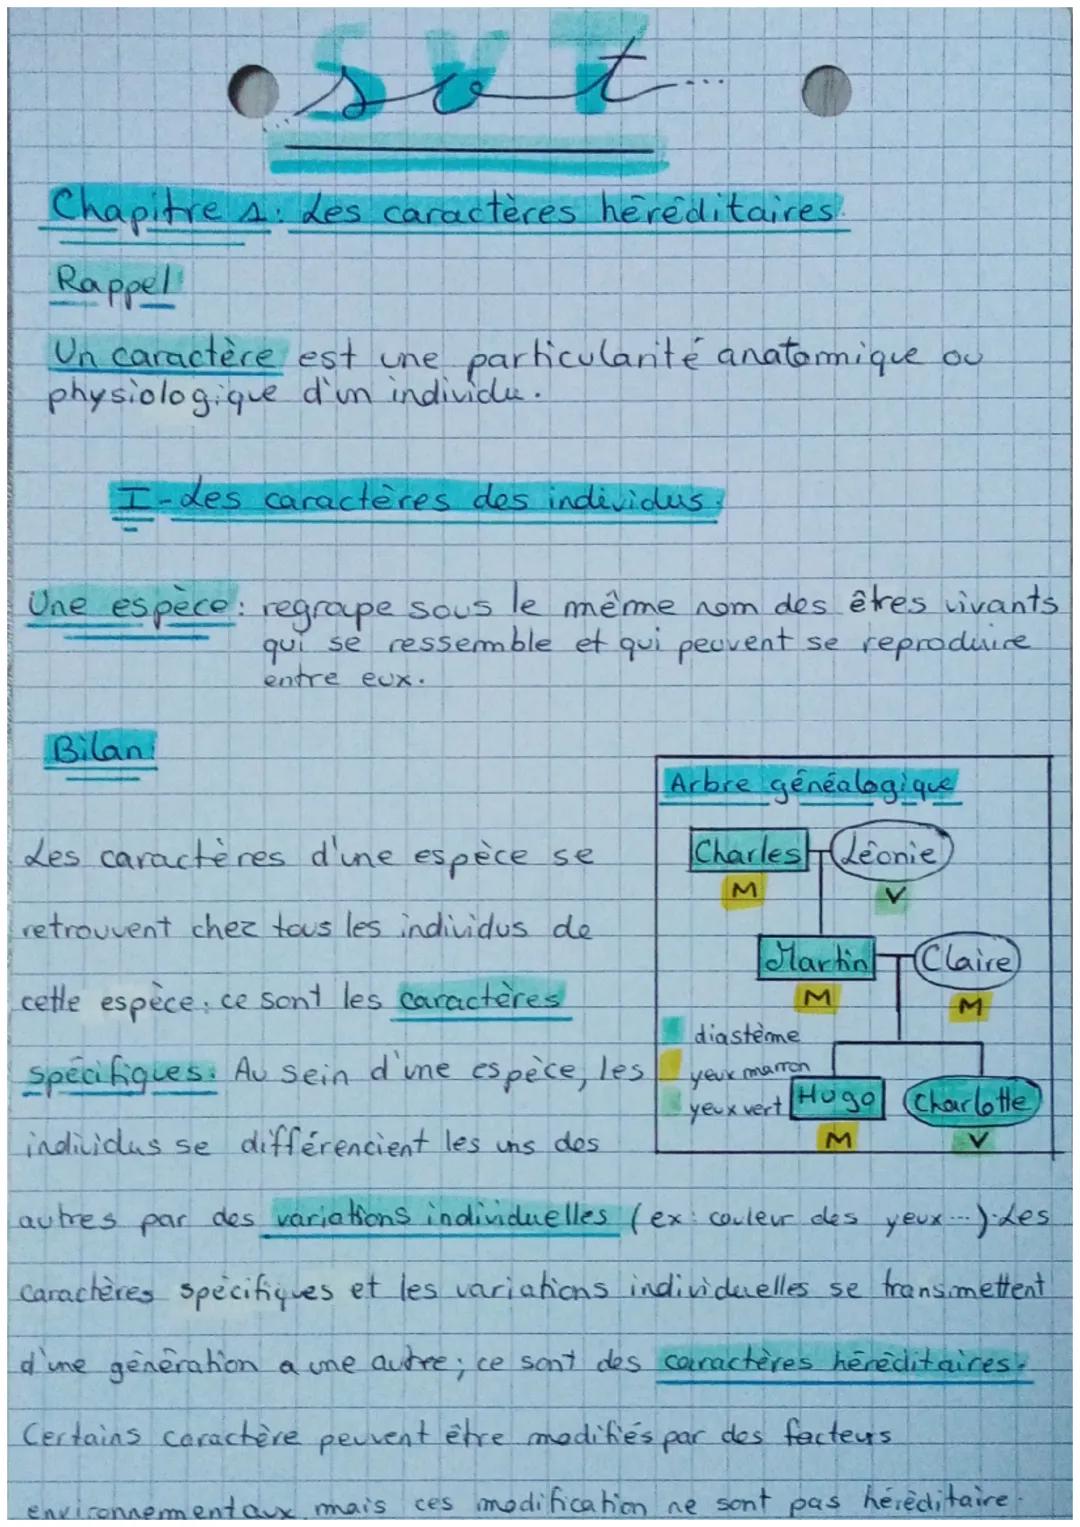 SVT
svt...
Chapitre 1: Les caractères héréditaires.
Rappel:
Un caractère est une particularité anatomique ou
physiologique d'un individu.
I - Les caractères des individus.
Une espèce: regroupe sous le même nom des êtres vivants
qui se ressemble et qui peuvent se reproduire
entre eux.
Bilan:
Les caractères d'une espèce se
retrouvent chez tous les individus de
cette espèce: ce sont les caractères
spécifiques. Au sein d'une espèce, les
individus se différencient les uns des
autres par des variations individuelles (ex: couleur des yeux...). Les
caractères spécifiques et les variations individuelles se transmettent
d'une génération a une autre; ce sont des caractères héréditaires.
Certains caractère peuvent être modifiés par des facteurs
environnementaux, mais ces modification ne sont pas héréditaire.
Arbre généalogique
Charles Léonie
M V
Martin Claire
M M
diastème
yeux marron
yeux vert
Hugo Charlotte
M V